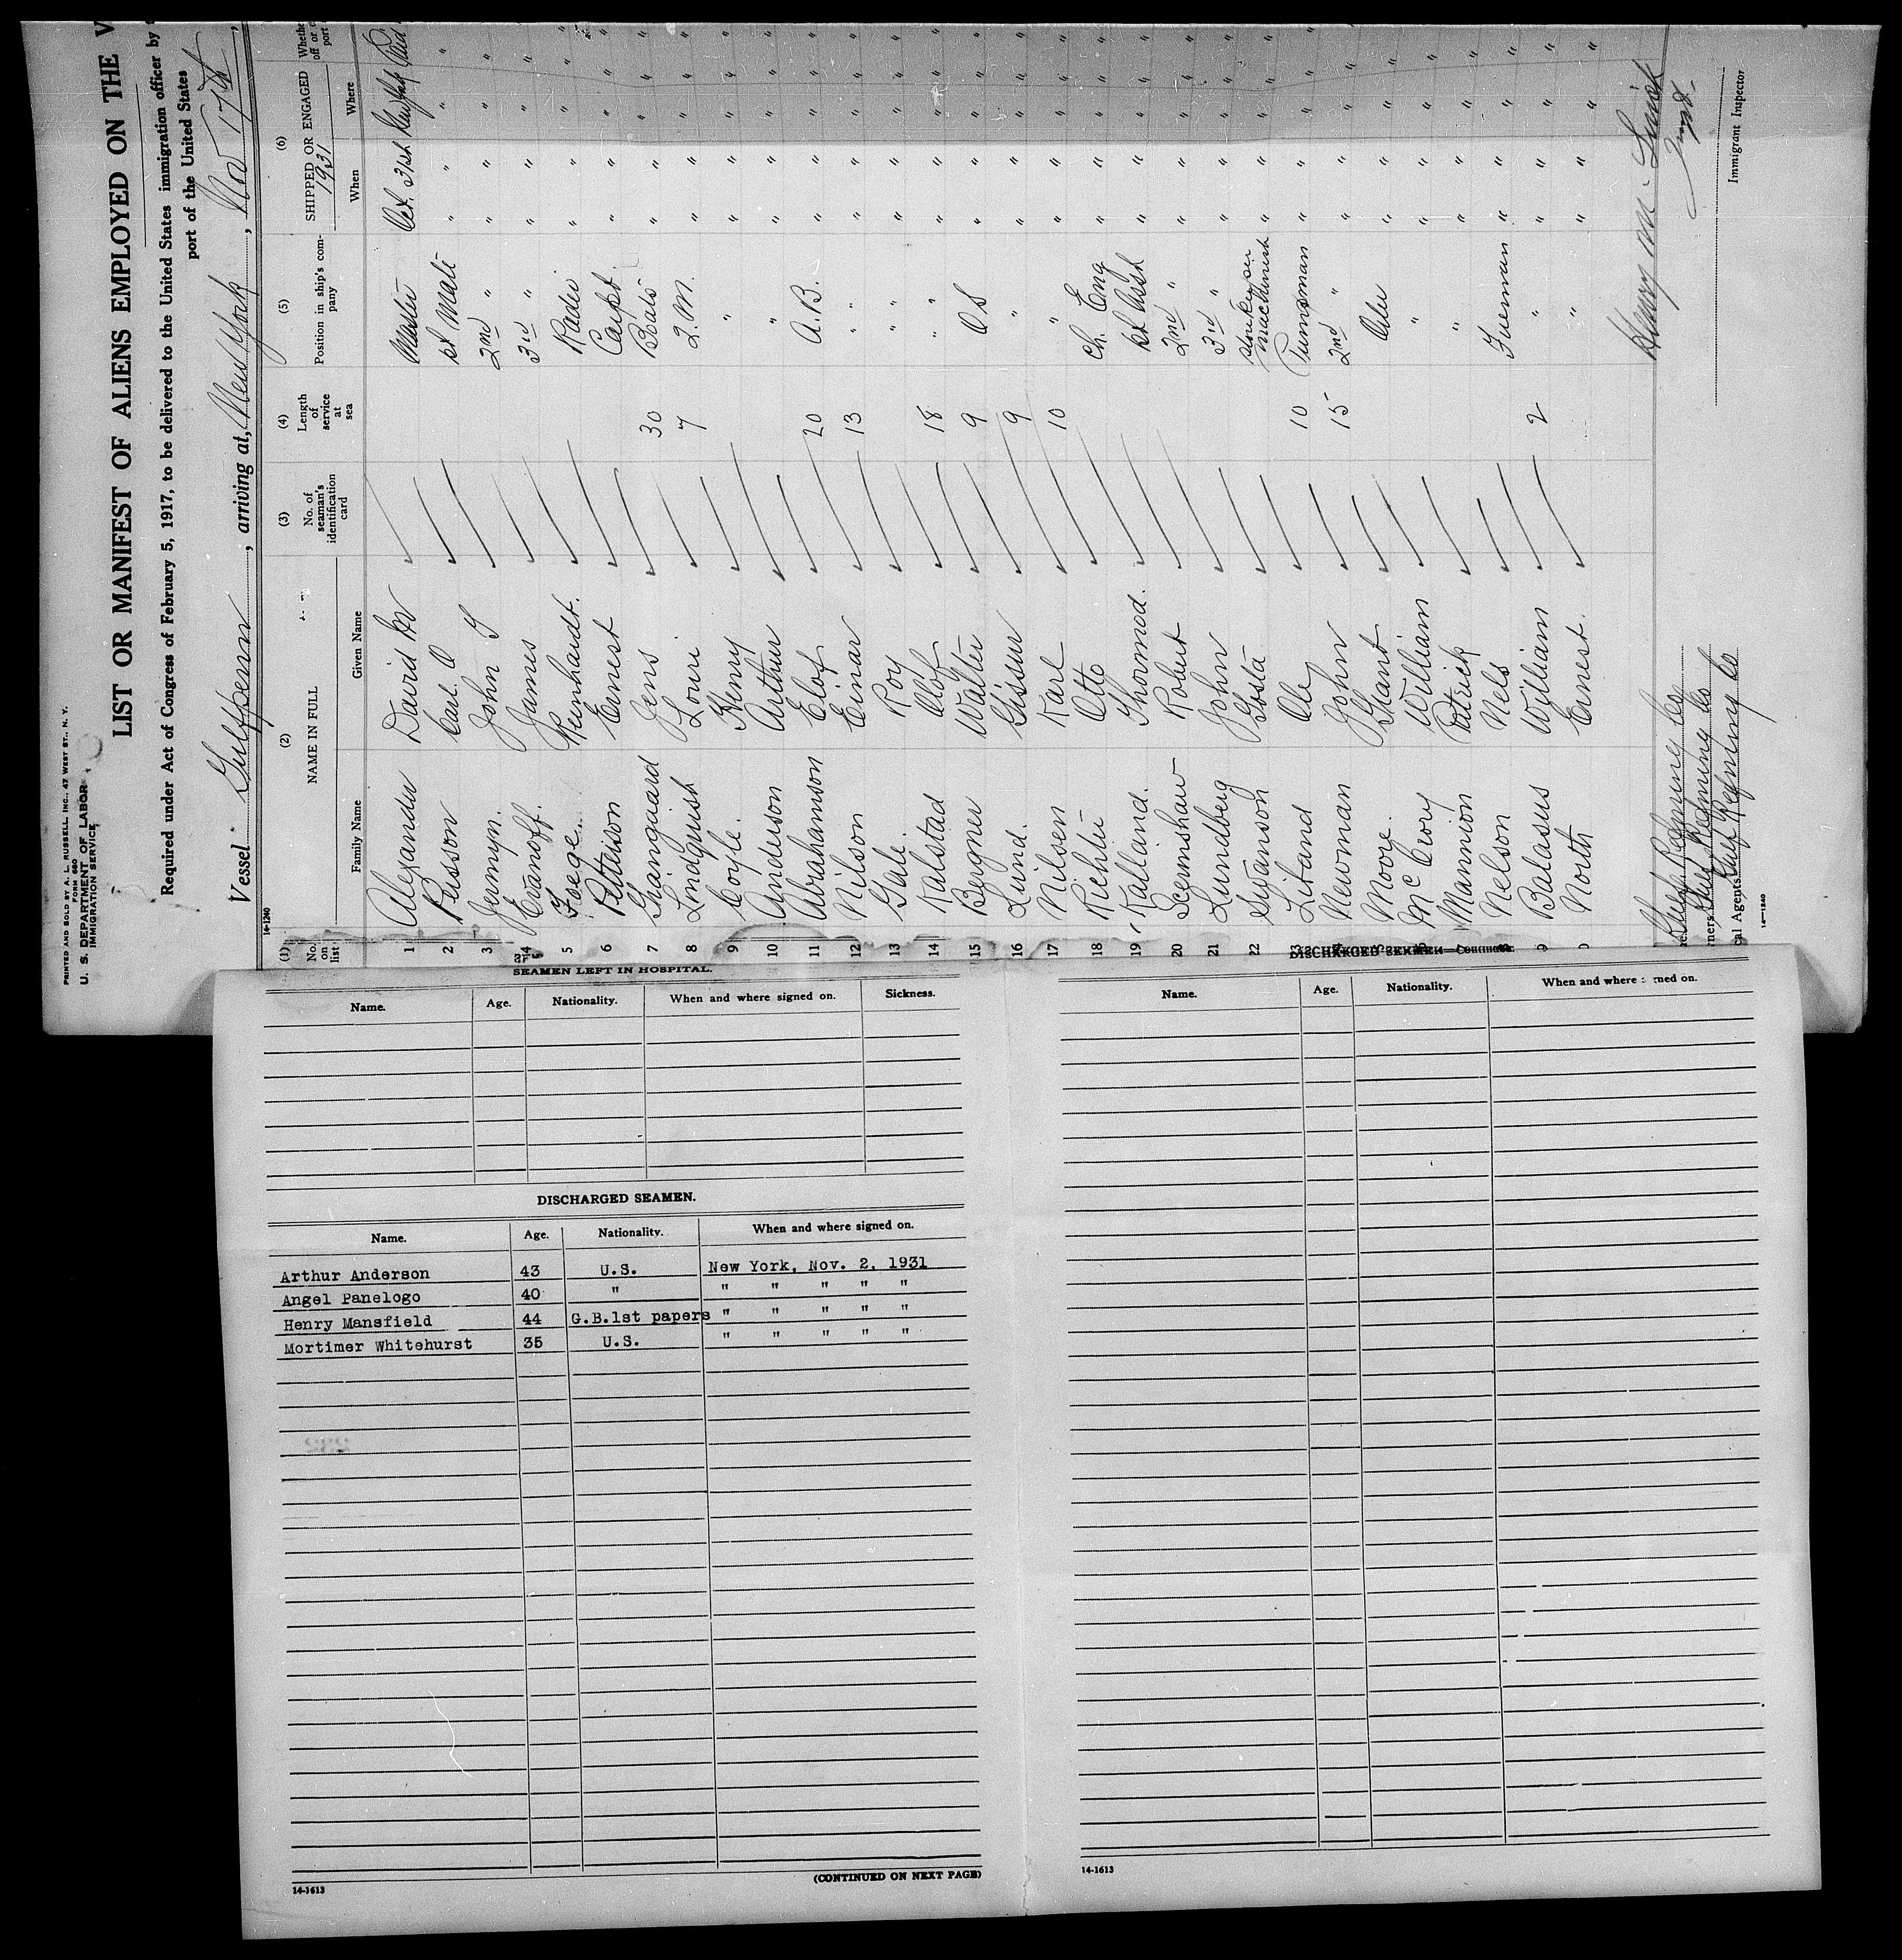 PRINTED AND SOLD BY A. L. RUSSELL, INC., 47 WEST ST., N. Y.
FORM 680
U. S. DEPARTMENT OF LABOR
IMMIGRATION SERVICE
LIST OR MANIFEST OF ALIENS EMPLOYED ON THE V
Required under Act of Congress of February 5, 1917, to be delivered to the United States immigration officer by
port of the United States
Vessel Gulfpenn, arriving at, New York, Nov 17th,
14-1240
(1) (2) (3) (4) (5) (6)
No. on list NAME IN FULL No. of seaman's identification card Length of service at sea Position in ship's company SHIPPED OR ENGAGED Whethe off or port
1931
Family Name Given Name When Where
1 Alexander David W Master Oct. 31st
2 Persson Carl O 1st Mate " " " "
3 Jermyn. John J 2nd " " " " "
4 Evanoff. James 3rd " " " " "
5 Foege. Reinhardt. Radio " " " "
6 Petterson Ernest Carpt. " " " "
7 Giangaard Jens 30 Boats " " " "
8 Lindquish Louri 7 Q.M. " " " "
9 Coyle. Henry " " " " "
10 Anderson Arthur " " " " "
11 Abrahamson Elof 20 A.B. " " " "
12 Nilson Einar 13 " " " " "
13 Gale. Roy " " " " "
14 Kalstad Olof 18 " " " " "
15 Bergner Walter 9 O S " " " "
16 Lund. Gissur 9 " " " " "
17 Nilsen Karl 10 " " " " "
18 Richter Otto Ch. Eng " " " "
19 Kalland. Thormod. 1st Asst " " " "
20 Scrimshaw Robert 2nd " " " " "
21 Lundberg John 3rd " " " " "
22 Swanson Gosta Storekeeper Machinist " " " "
23 Litland Ole 10 Pumpman " " " "
Newman John 15 2nd " " " " "
Moore. Grant Oiler " " " "
McCrory William " " " " "
Mannion Patrick " " " " "
Nelson Nels Fireman " " " "
9 Balasus William 2 " " " " "
0 North Ernest. " " " " "
Gulf Refining Co
ners Gulf Refining Co
cal Agents Gulf Refining Co
Immigrant Inspector
14-1240
SEAMEN LEFT IN HOSPITAL.
Name. Age. Nationality. When and where signed on. Sickness.
DISCHARGED SEAMEN.
Name. Age. Nationality. When and where signed on.
Arthur Anderson 43 U.S. New York, Nov. 2, 1931
Angel Panelogo 40 " " " " " "
Henry Mansfield 44 G.B.1st papers " " " " "
Mortimer Whitehurst 35 U.S. " " " " "
(CONTINUED ON NEXT PAGE)
14-1613
DISCHARGED SEAMEN—Continued.
Name. Age. Nationality. When and where signed on.
14-1613